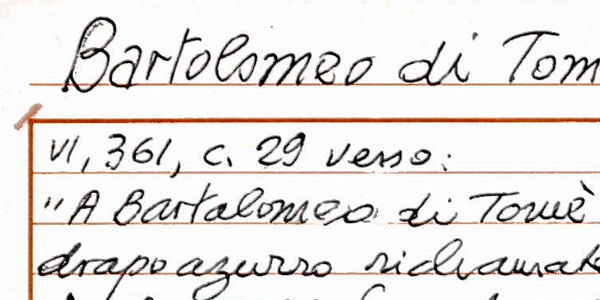 Bartolomeo di Tom
VI, 361, c. 29 verso:
"A Bartalomeo di Tomè
drapo azurro richamat